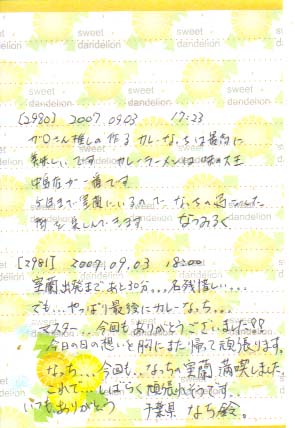 sweet dandelion
[2980] 2009.09.03 17:23
ガロさん推しの作るカレーなっちは最高に
美味しいです カレーラーメンは味の大王
中島店が一番です
5日まで室蘭にいるので、なっちの過ごした
街を楽しんできます。 なつみろく
[2981] 2009.09.03 18:00
室蘭出発まであと30分...名残惜しい...
でも...やっぱり最後にカレーなっち...
マスター..今回もありがとうございました!!
今日の日の想いを胸にまた帰って頑張ります。
なっち...今回も...なっちの室蘭満喫しました
これで...しばらく頑張れそうです..
いつもありがとう 千葉県 なち鈴。